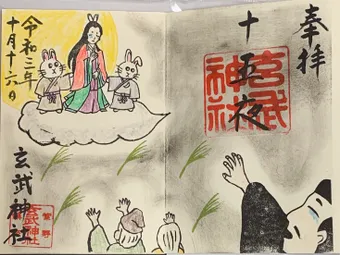 奉拝
十五夜
玄武神社
令和三年
十月十六日
玄武神社
紫野
玄武神社